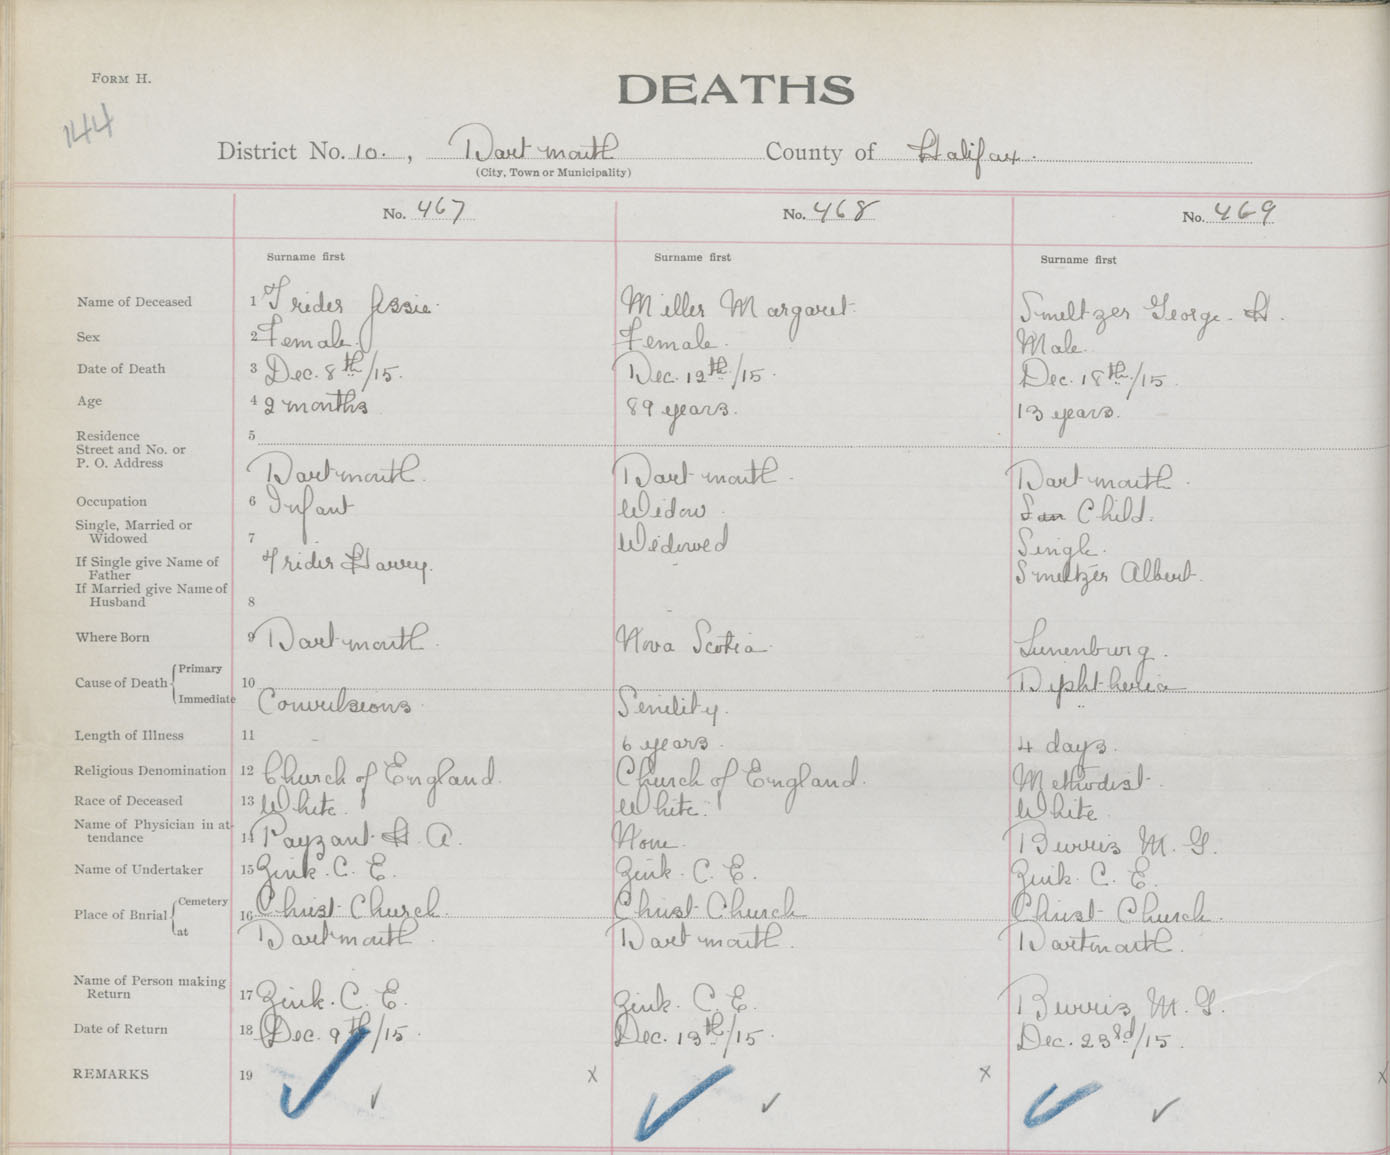 FORM H.
DEATHS
144
District No. 10. , Dartmouth County of Halifax.
(City, Town or Municipality)
No. 467 No. 468 No. 469
Surname first Surname first Surname first
Name of Deceased 1 Trider Jessie. Miller Margaret. Smeltzer George. H.
Sex 2 Female. Female. Male.
Date of Death 3 Dec. 8th/15. Dec. 12th/15. Dec. 18th/15.
Age 4 2 months 89 years. 13 years.
Residence 5
Street and No. or
P. O. Address Dartmouth. Dartmouth. Dartmouth.
Occupation 6 Infant Widow. Child.
Single, Married or
Widowed 7 Widowed Single.
If Single give Name of
Father Trider Harvey. Smeltzer Albert.
If Married give Name of
Husband 8
Where Born 9 Dartmouth. Nova Scotia. Lunenburg.
Cause of Death Primary 10 Diphtheria
Immediate Convulsions. Senility.
Length of Illness 11 – 6 years. 4 days.
Religious Denomination 12 Church of England. Church of England. Methodist.
Race of Deceased 13 White. White. White.
Name of Physician in at-
tendance 14 Payzant. H. A. None. Burris M. G.
Name of Undertaker 15 Zink. C. E. Zink. C. E. Zink. C. E.
Place of Burial Cemetery 16 Christ Church. Christ Church Christ Church.
at Dartmouth. Dartmouth. Dartmouth.
Name of Person making
Return 17 Zink. C. E. Zink. C. E. Burris M. G.
Date of Return 18 Dec. 9th/15. Dec. 13th/15. Dec. 23rd/15.
REMARKS 19 x x x